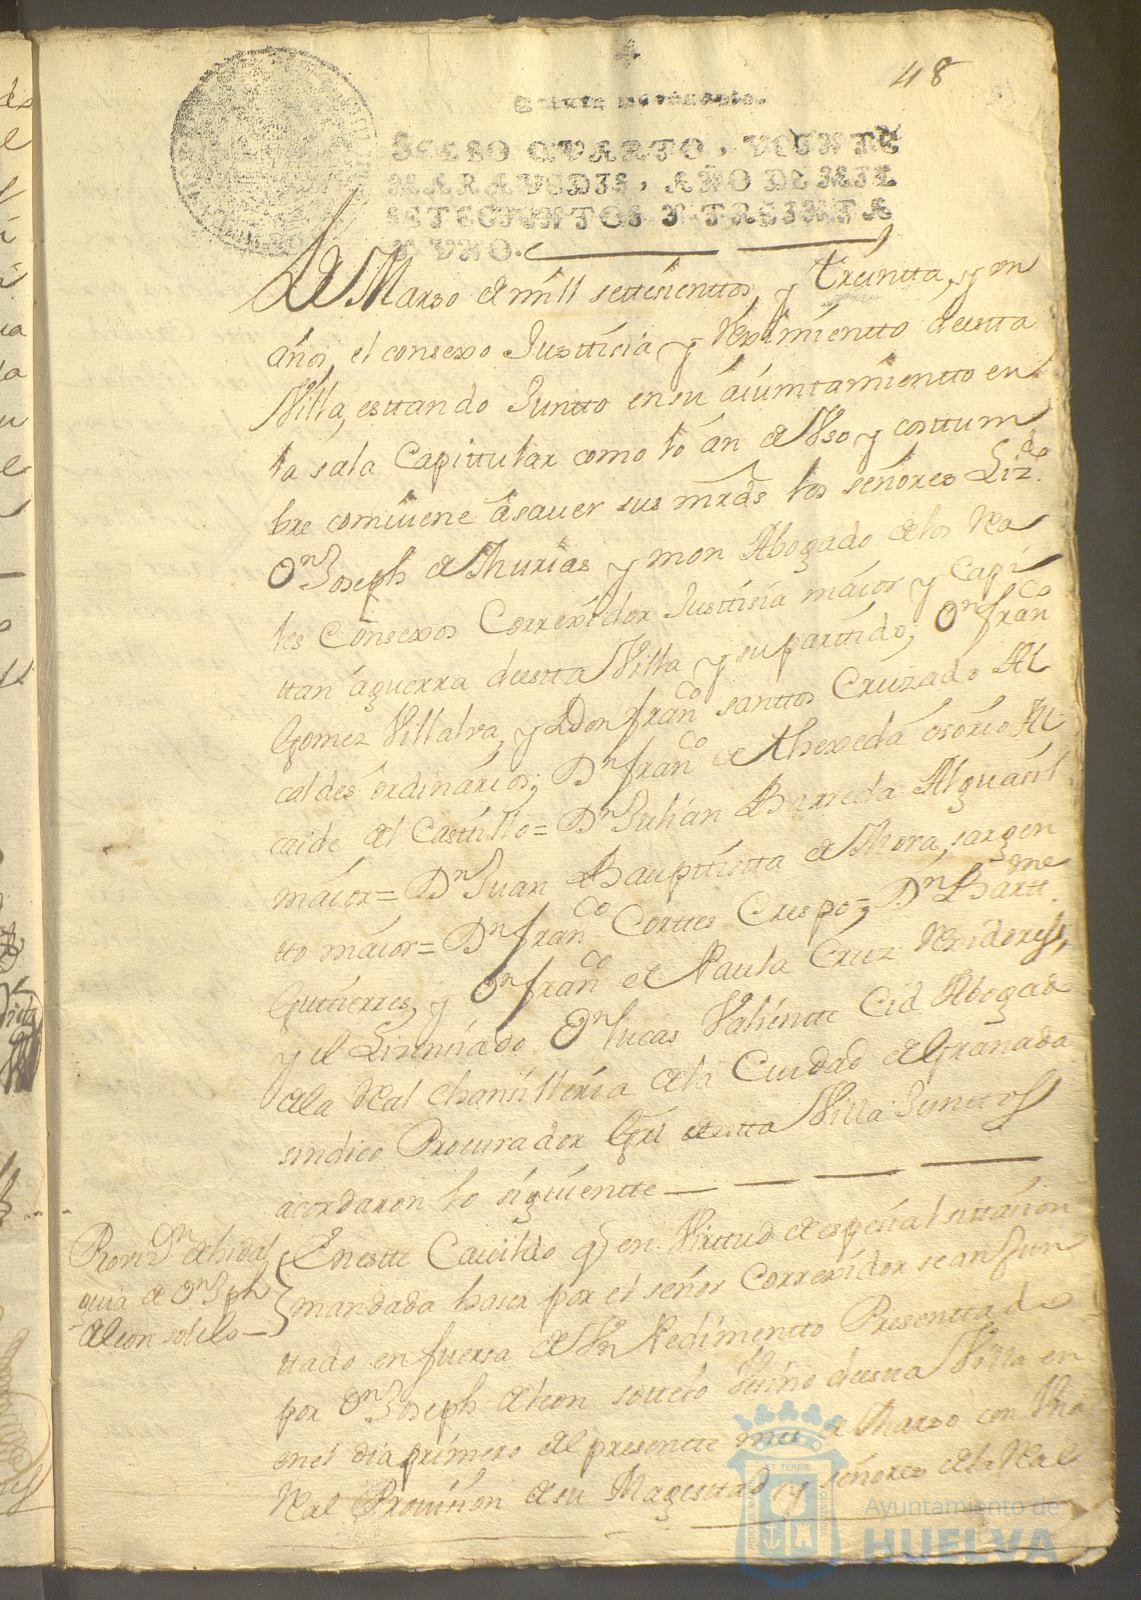 48
SELLO QVARTO, VEINTE
MARAVEDIS, AÑO DE MIL
SETECIENTOS Y TREINTA
Y VNO.
de Marzo de mill settesienttos, y treintta, y un
años, el consexo Justtisia y Reximientto deestta
Villa, esttando Juntto en su aiumtamientto en
la sala Capittular como lo an de Vso y costtum
bre comviene asaver sus mrds los señores Lizdo
Dn Joseph de Thurias y mon Abogado de los Rea
les Consexos Correxidor Justtisia maior y Capi
ttan aguerra deestta Villa y su parttido; Dn franco
Gomez Villalva, y Don franco santtos Cruzado Al
caldes ordinarios; Dn franco de Thexeda osorio Al
caide del Casttillo= Dn Julian Barreda Alguasil
maior= Dn Juan Bapttistta de Mora, sargen
tto maior= Dn franco Corttes Crespo=, Dn Barttme
Gutierres, y Dn franco de Paula Cruz Rexidores,
y el Lizenciado Dn lucas Valientte Cid Abogado
dela Real chansilleria dela Ciudad de Granada
sindico Procurador Grl deestta Villa Junttos
acordaron lo siguientte
Provizn de hidal
guia de Dn Jph
de leon sotelo
Enestte Cavildo q en Virttud de espesial sittasion
mandada haser por el señor Correxidor se an Jun
ttado en fuersa de Vn Pedimentto Presenttado
por Dn Joseph de leon sottelo Vesino deestta Villa en
enel dia primero del presentte mes de Marzo con Vna
Real Provision de su Magesttad y señores dela Real
ET TERRAE
Ayuntamiento de
HUELVA